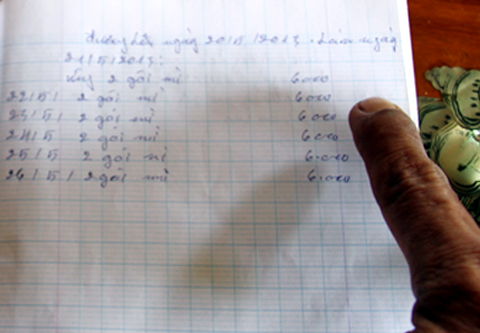 ngày 20/5/2013.
21/5/2013:
2 gói mì 6000
22/5/ 2 gói mì 6000
23/5/ 2 gói mì 6000
24/5 2 gói mì 6000
25/5 2 gói mì 6.000
26/5/ 2 gói mì 6.000